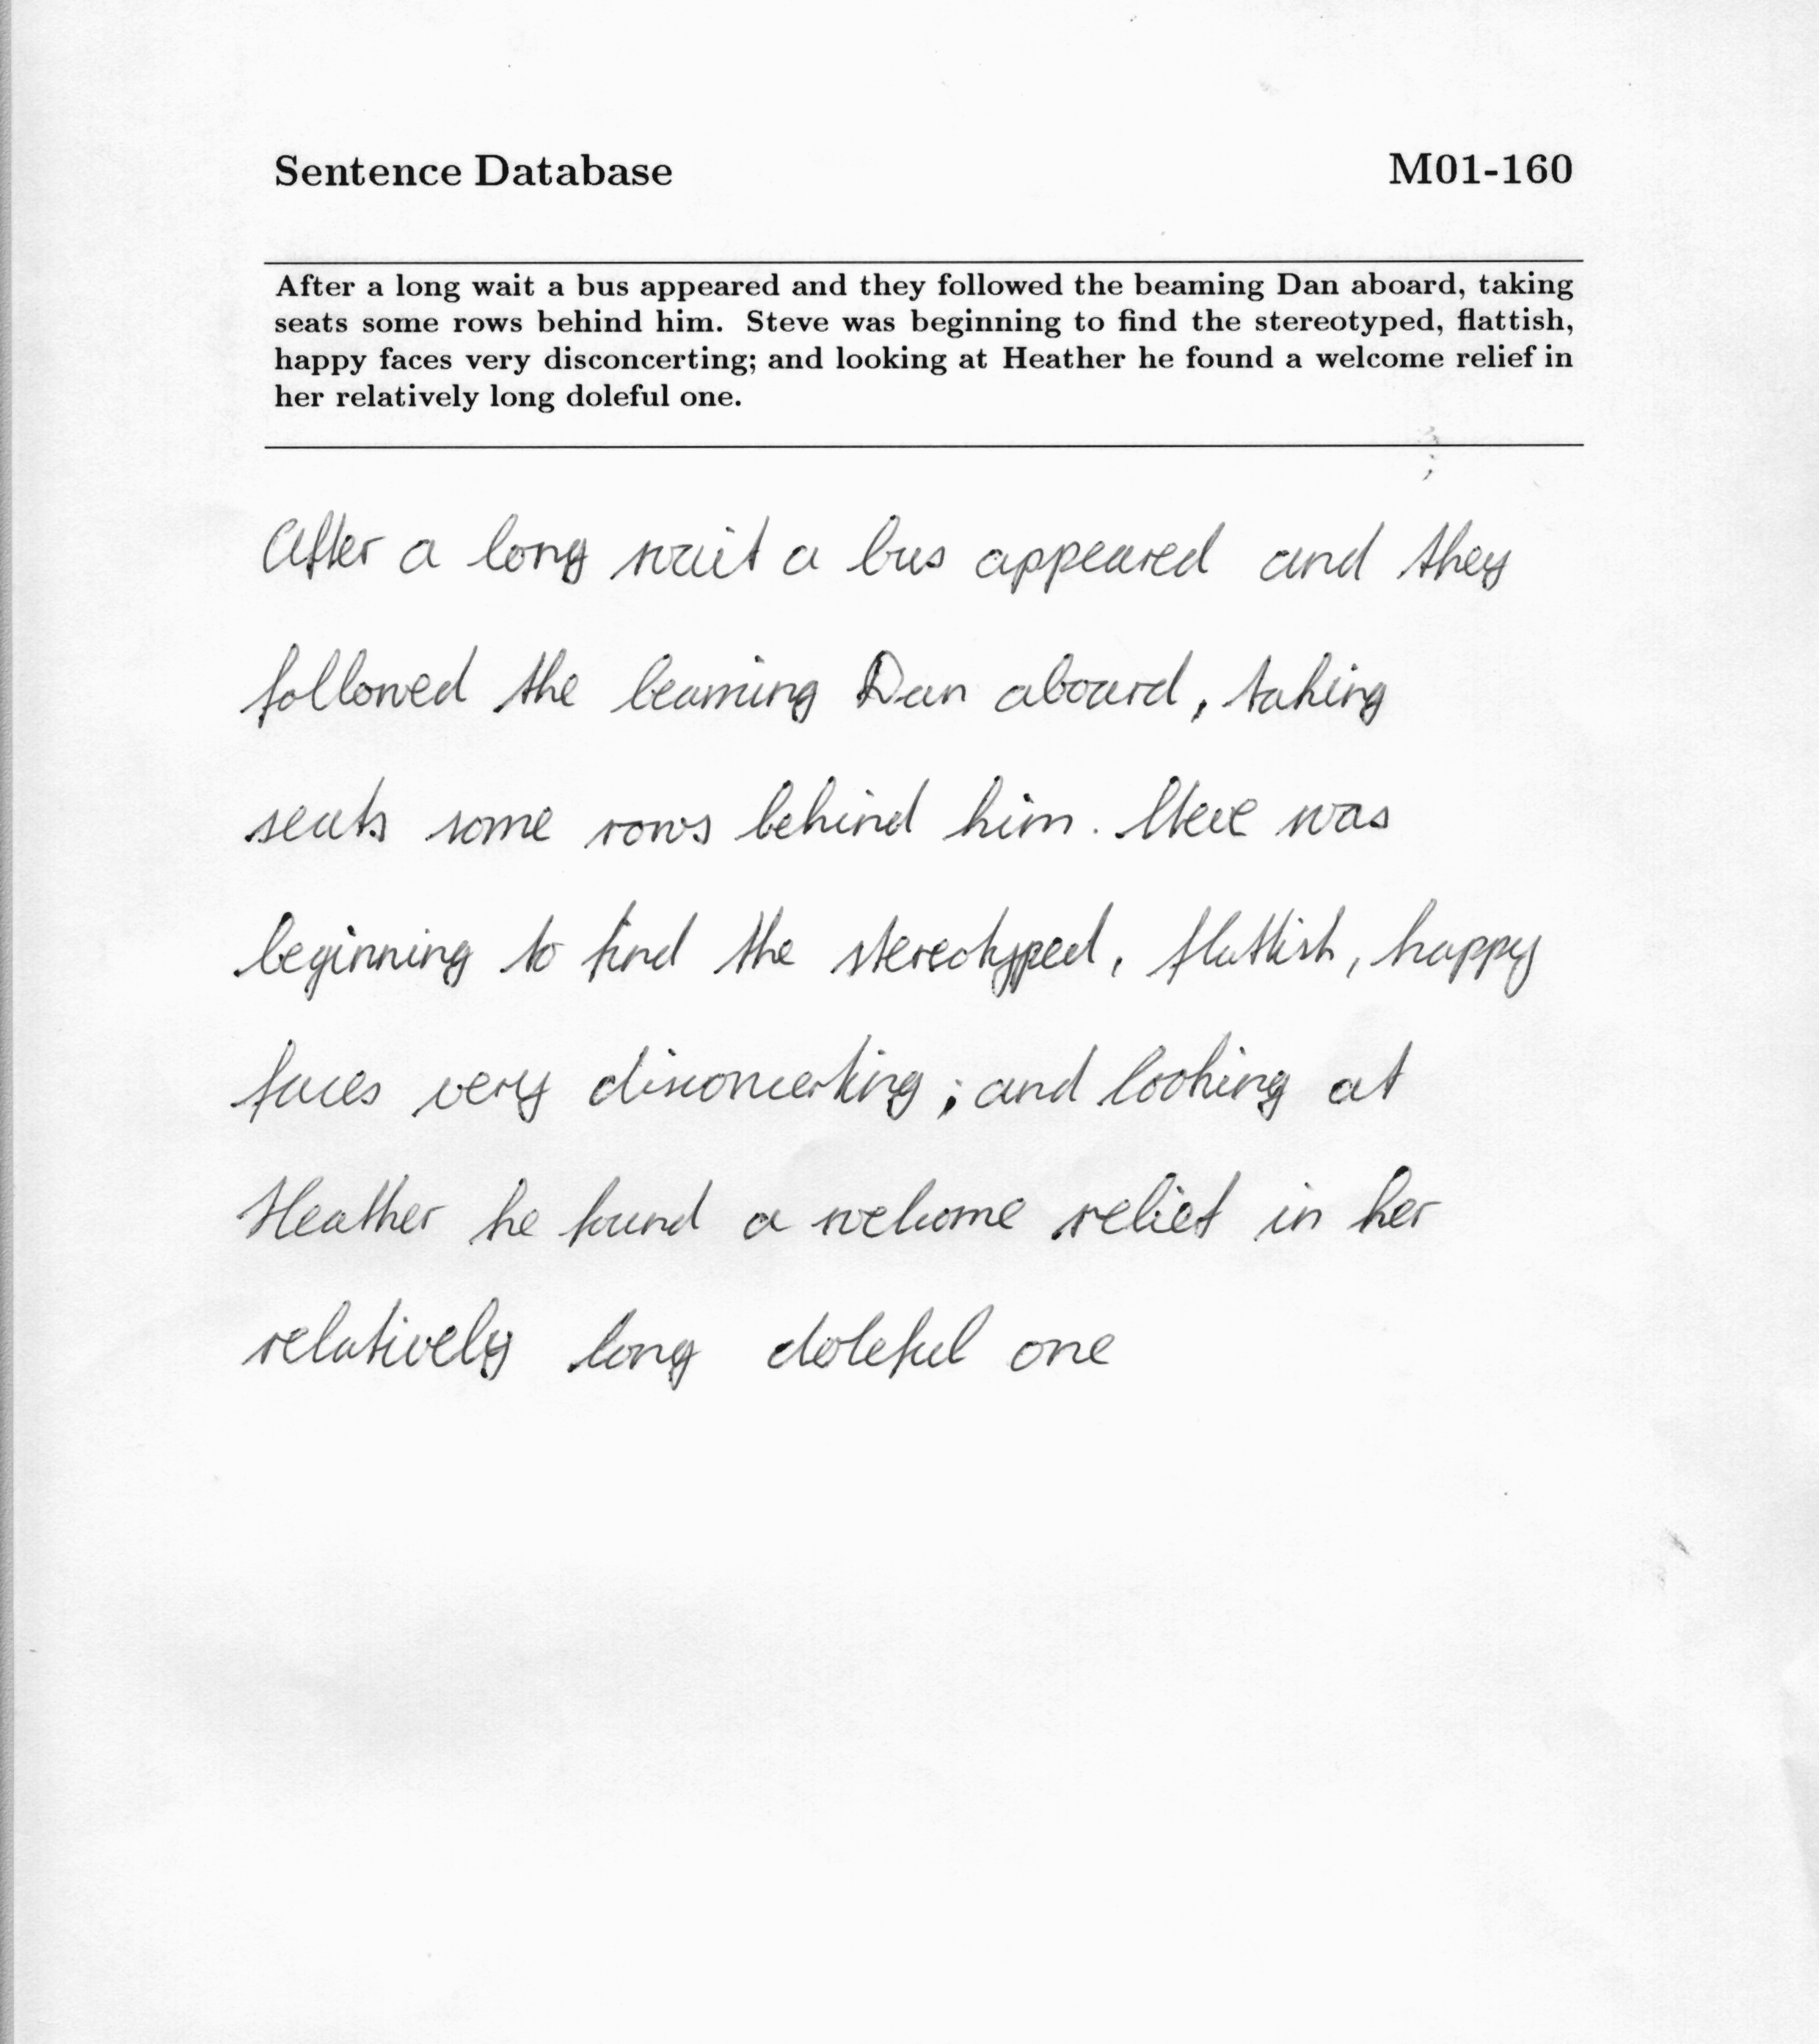 Sentence Database M01-160
After a long wait a bus appeared and they followed the beaming Dan aboard, taking
seats some rows behind him. Steve was beginning to find the stereotyped, flattish,
happy faces very disconcerting; and looking at Heather he found a welcome relief in
her relatively long doleful one.
After a long wait a bus appeared and they
followed the beaming Dan aboard, taking
seats some rows behind him. Steve was
beginning to find the stereotyped, flattish, happy
faces very disconcerting; and looking at
Heather he found a welcome relief in her
relatively long doleful one